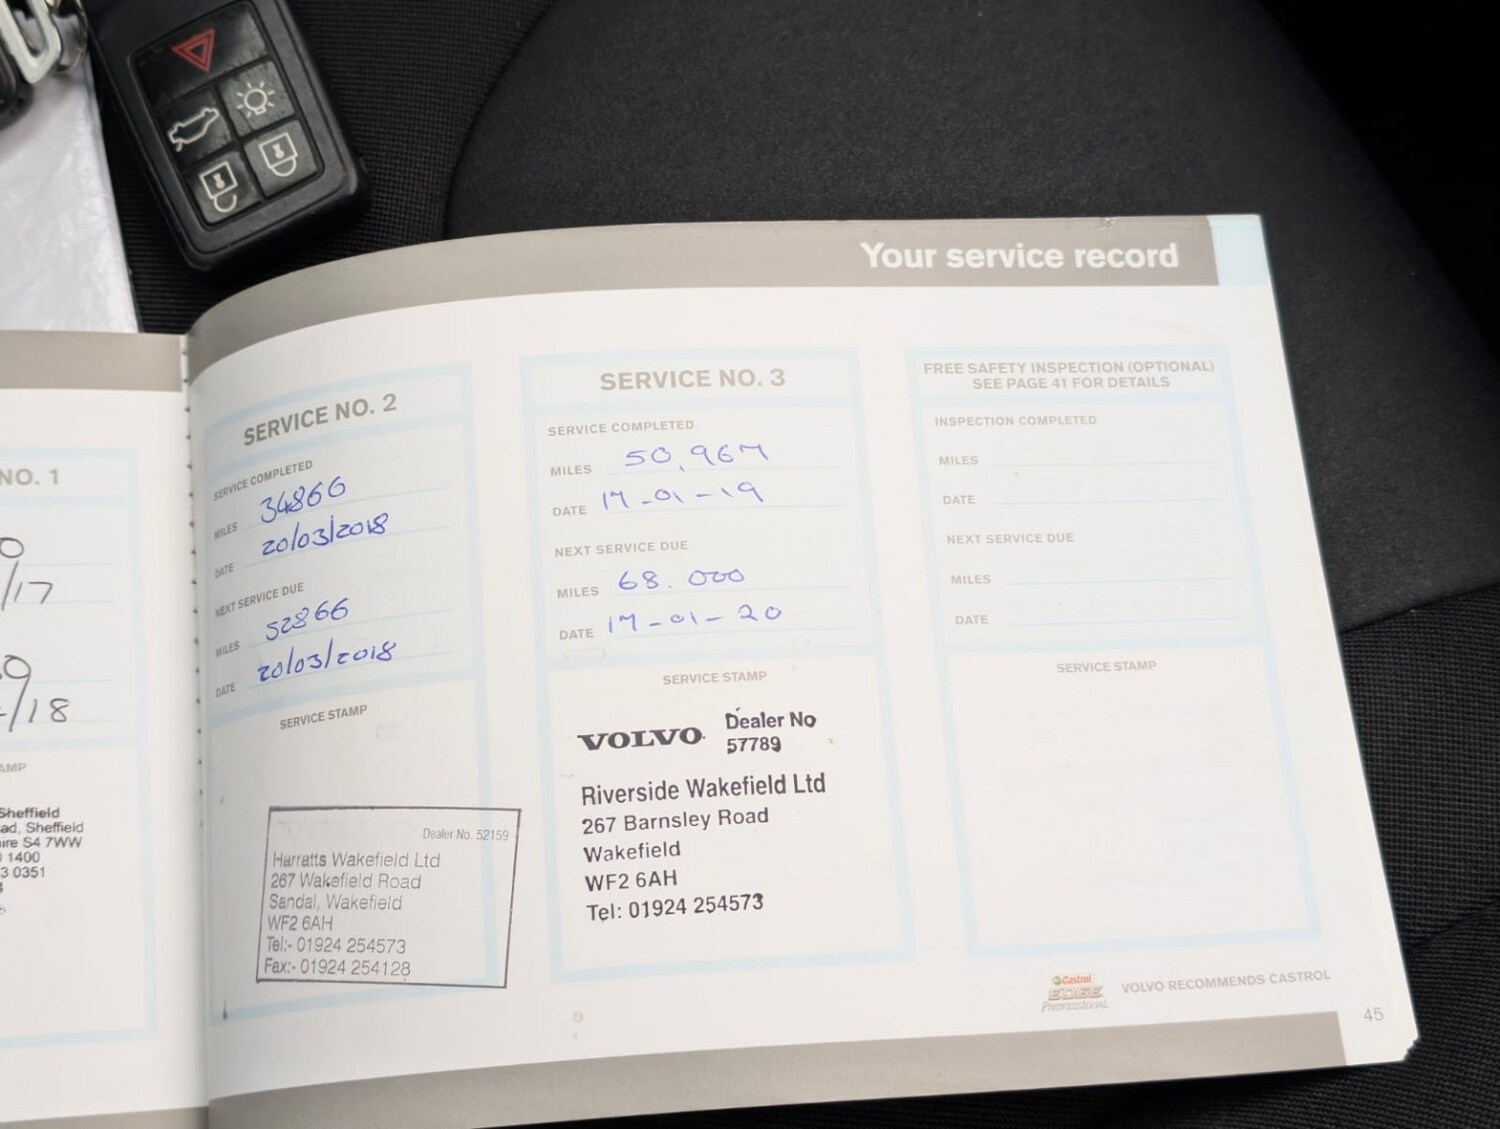 Your service record
NO. 1
0
/17
0
/18
AMP
Sheffield
ad, Sheffield
ire S4 7WW
1400
3 0351
4
SERVICE NO. 2
SERVICE COMPLETED
MILES 34866
DATE 20/03/2018
NEXT SERVICE DUE
MILES 52866
DATE 20/03/2018
SERVICE STAMP
Dealer No. 52159
Harratts Wakefield Ltd
267 Wakefield Road
Sandal, Wakefield
WF2 6AH
Tel:- 01924 254573
Fax:- 01924 254128
SERVICE NO. 3
SERVICE COMPLETED
MILES 50,967
DATE 17-01-19
NEXT SERVICE DUE
MILES 68.000
DATE 17-01-20
SERVICE STAMP
VOLVO Dealer No
57789
Riverside Wakefield Ltd
267 Barnsley Road
Wakefield
WF2 6AH
Tel: 01924 254573
FREE SAFETY INSPECTION (OPTIONAL)
SEE PAGE 41 FOR DETAILS
INSPECTION COMPLETED
MILES
DATE
NEXT SERVICE DUE
MILES
DATE
SERVICE STAMP
Castrol
EDGE
Professional
VOLVO RECOMMENDS CASTROL
45